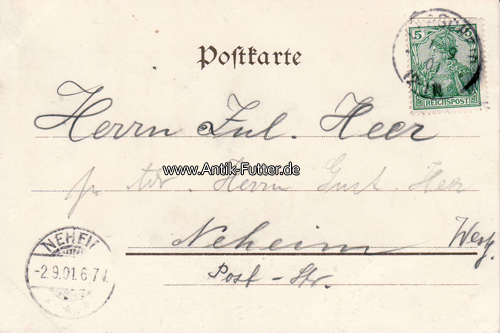 Postkarte
5
REICHSPOST
Herrn Jul. Heer
www.Antik-Futter.de
Herrn Gust. Heer
NEHEIM
-2.9.01.6-7N.
Neheim Westf.
Post-Str.